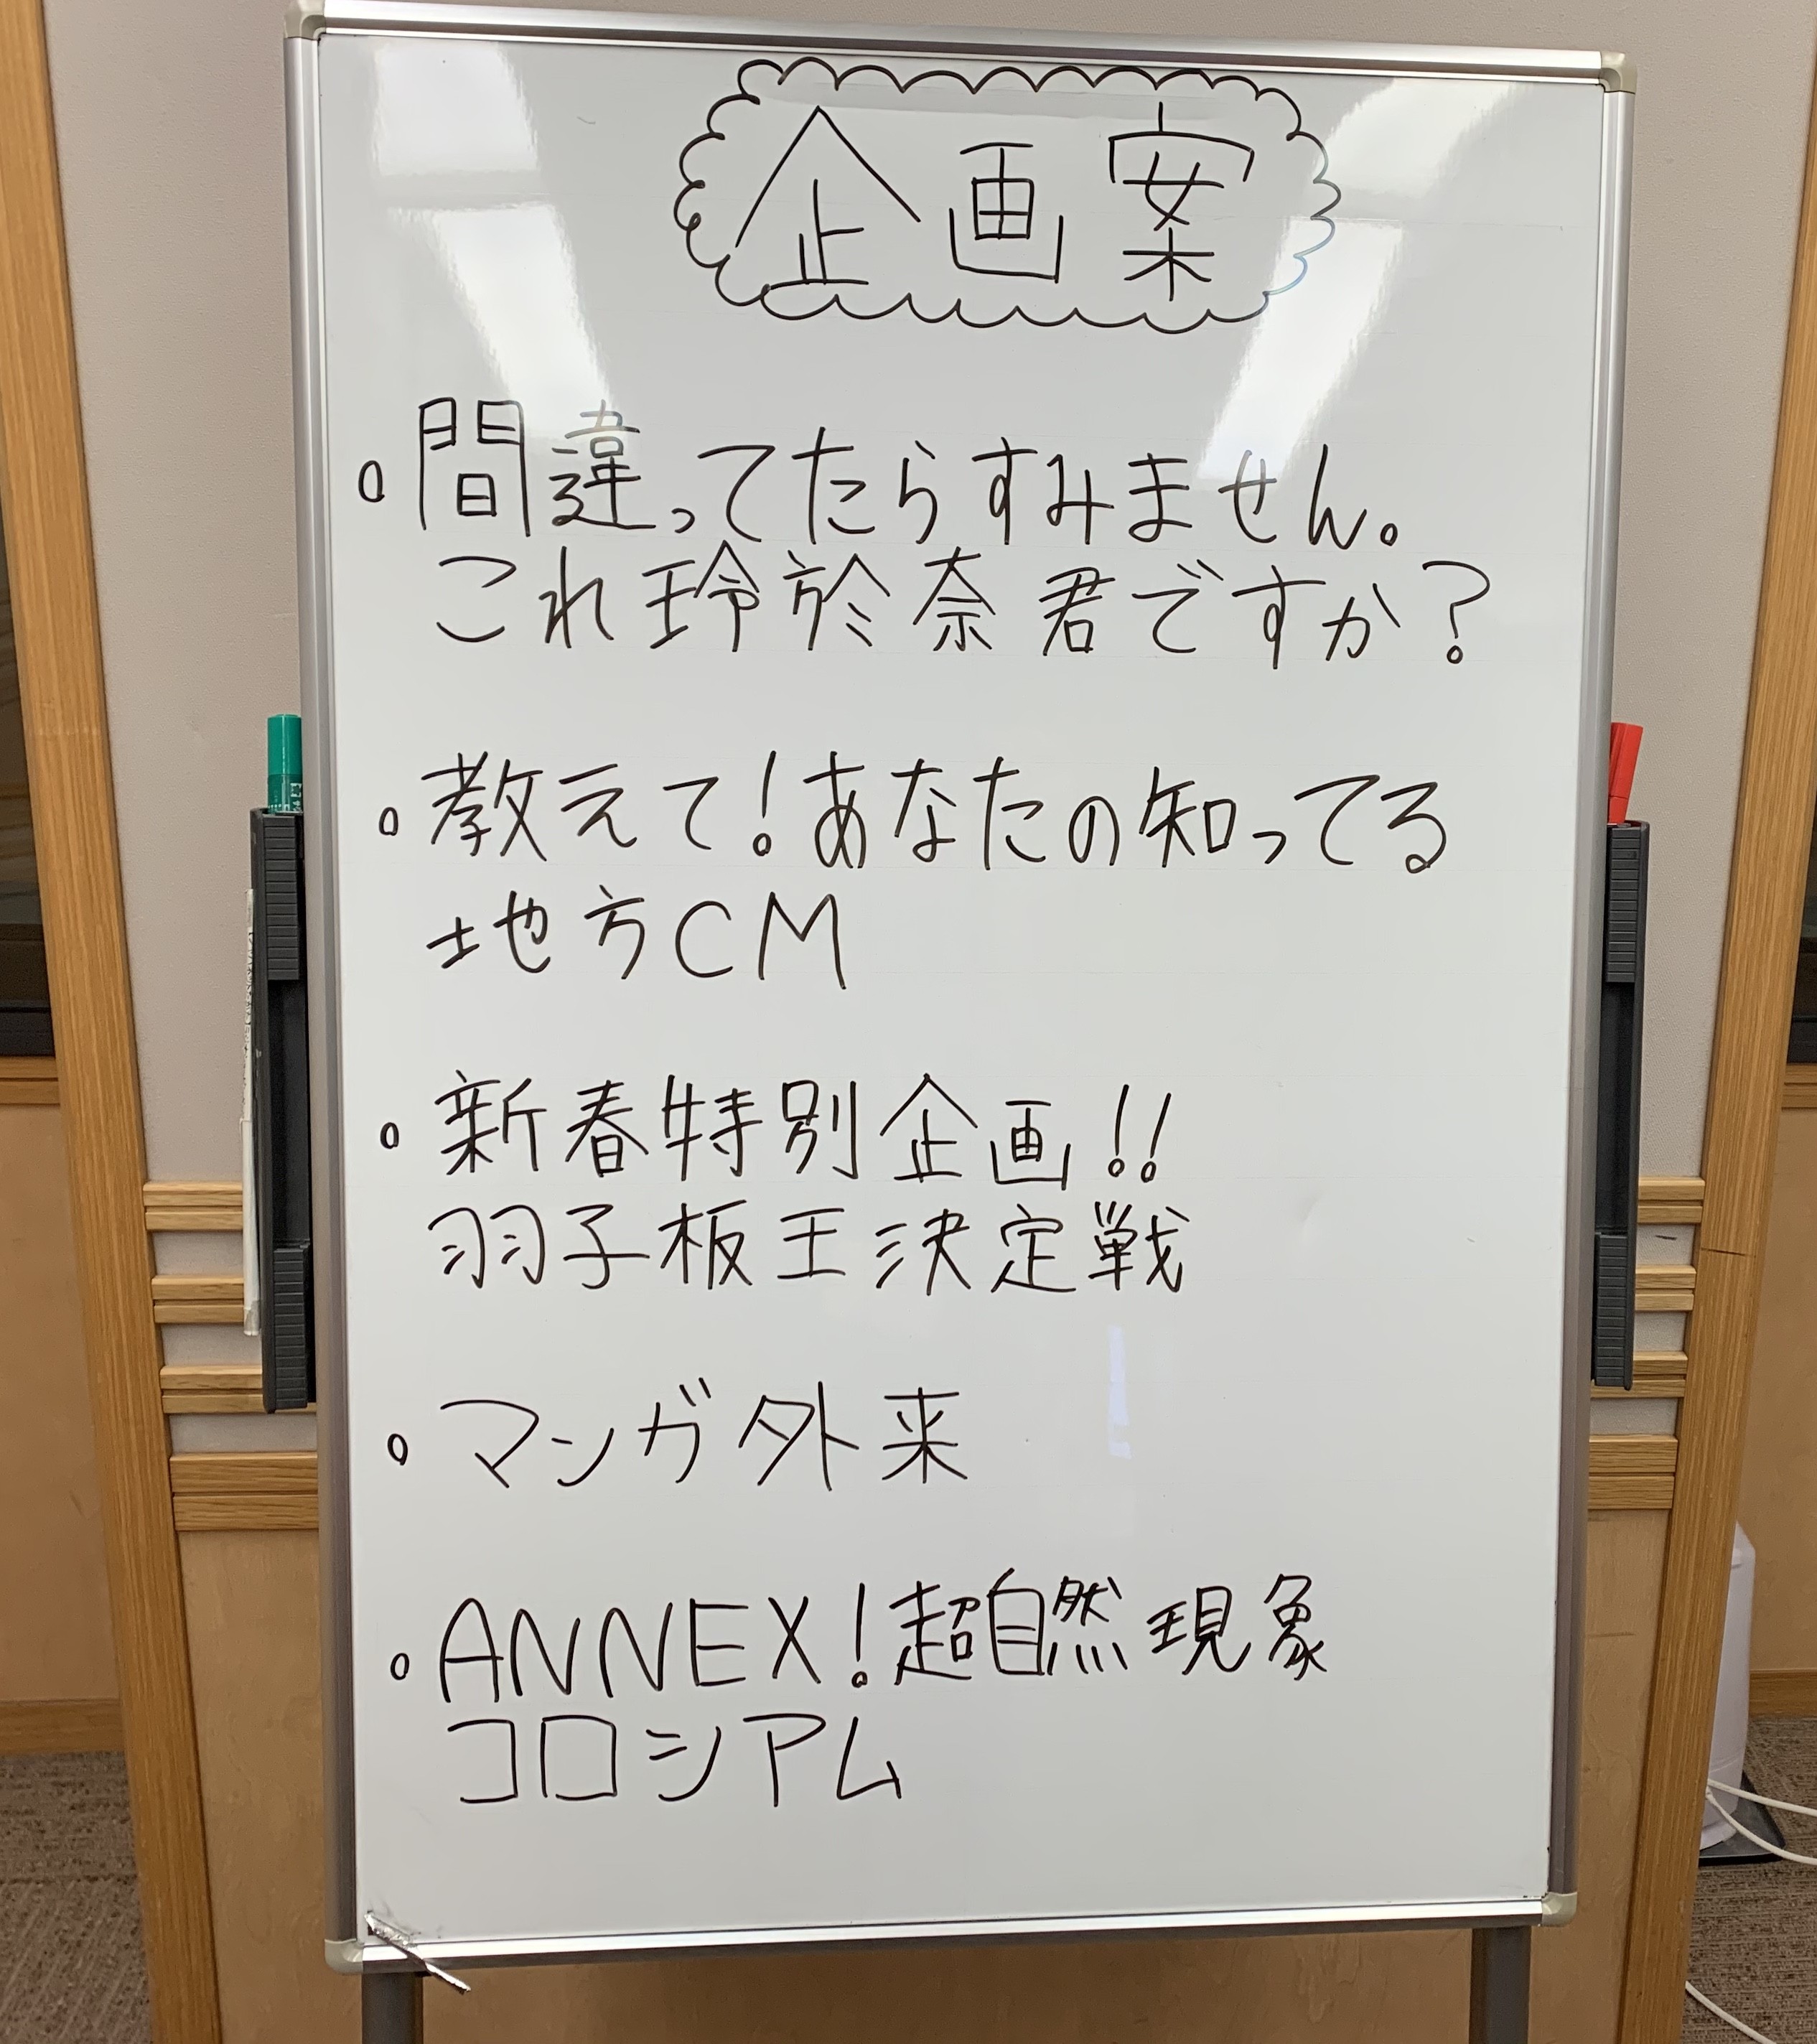 企画案
。間違ってたらすみません。
これ玲於奈君ですか?
。教えて!あなたの知ってる
地方CM
。新春特別企画!!
羽子板王決定戦
。マンガ外来
。ANNEX!超自然現象
コロシアム